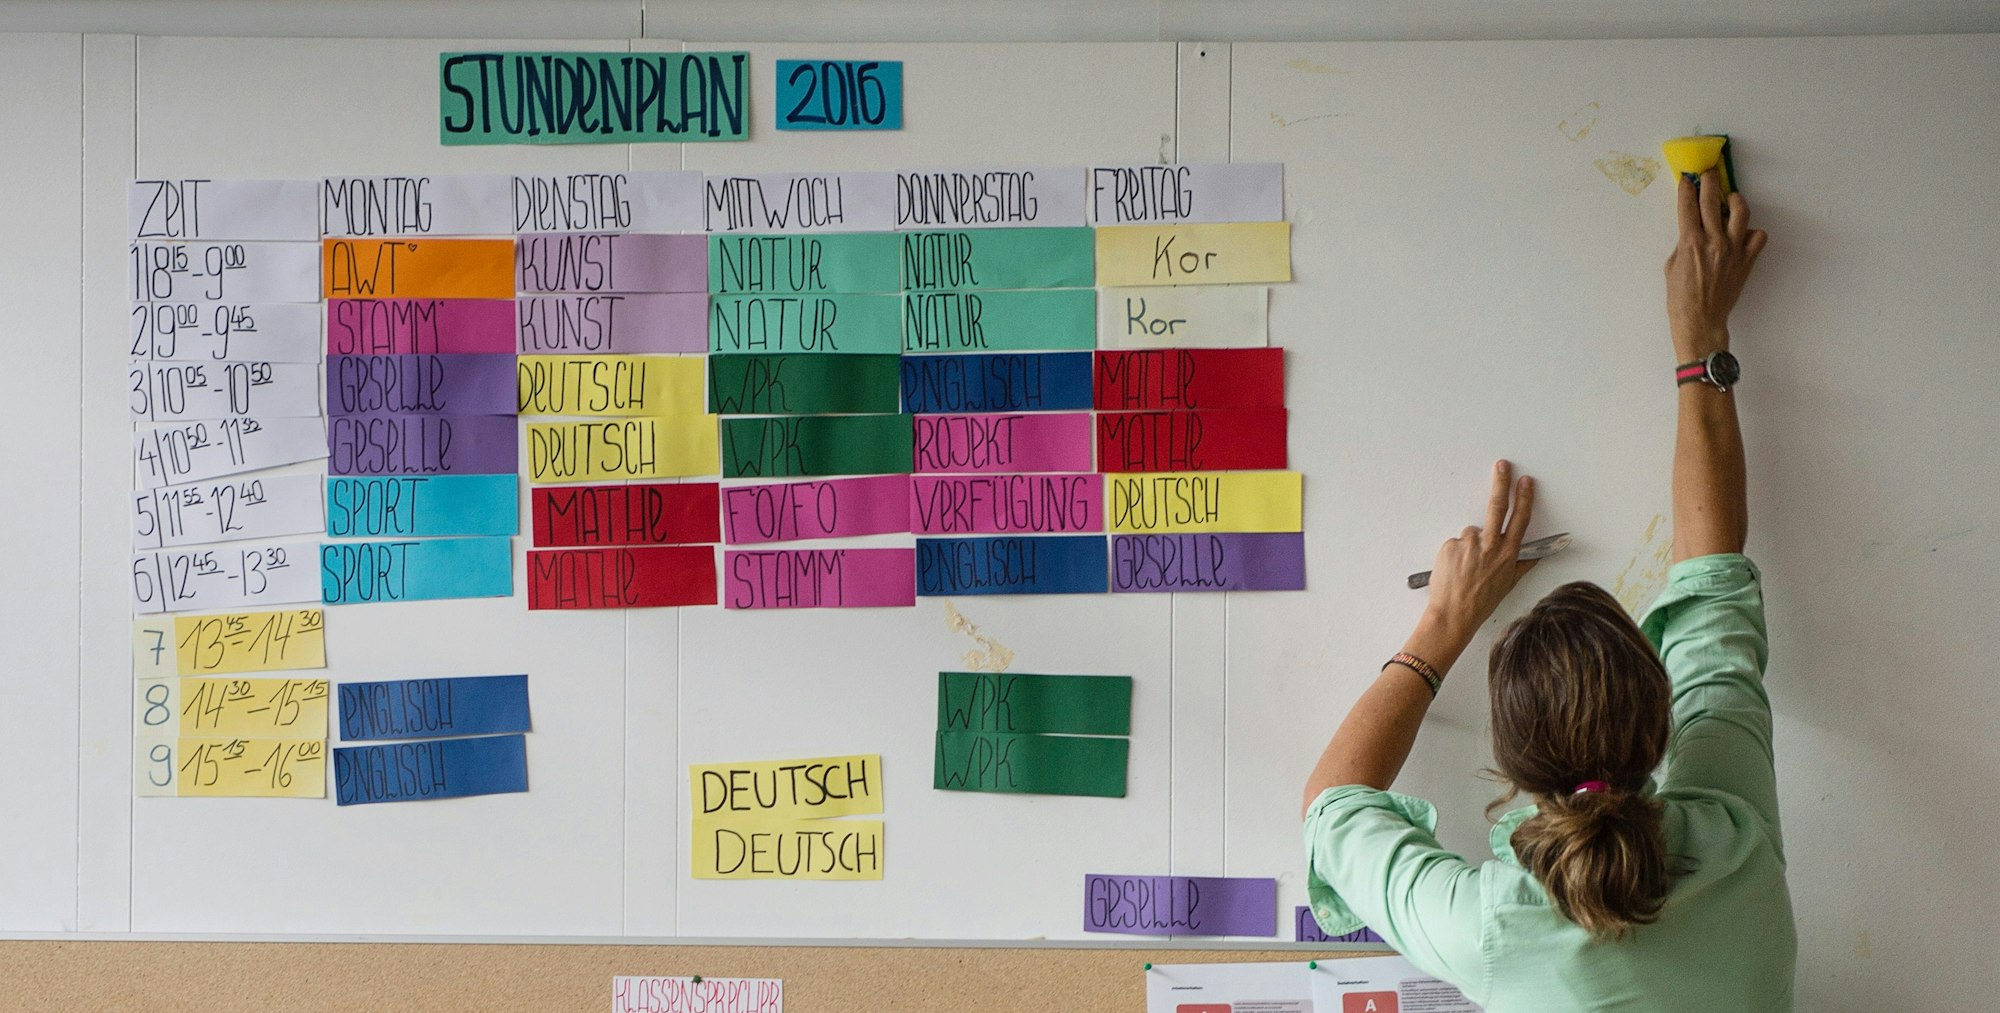 STUNDENPLAN 2016
ZEIT MONTAG DIENSTAG MITTWOCH DONNERSTAG FREITAG
1|8 15 - 9 00 AWT KUNST NATUR NATUR Kor
2|9 00 - 9 45 STAMM KUNST NATUR NATUR Kor
3|10 05 - 10 50 GESELLE DEUTSCH WPK ENGLISCH MATHE
4|10 50 - 11 35 GESELLE DEUTSCH WPK PROJEKT MATHE
5|11 55 - 12 40 SPORT MATHE FÖ/FO VERFÜGUNG DEUTSCH
6|12 45 - 13 30 SPORT MATHE STAMM ENGLISCH GESELLE
7 13 45 - 14 30
8 14 30 - 15 15 ENGLISCH WPK
9 15 15 - 16 00 ENGLISCH WPK
DEUTSCH
DEUTSCH
GESELLE
KLASSENSPRECHER
A